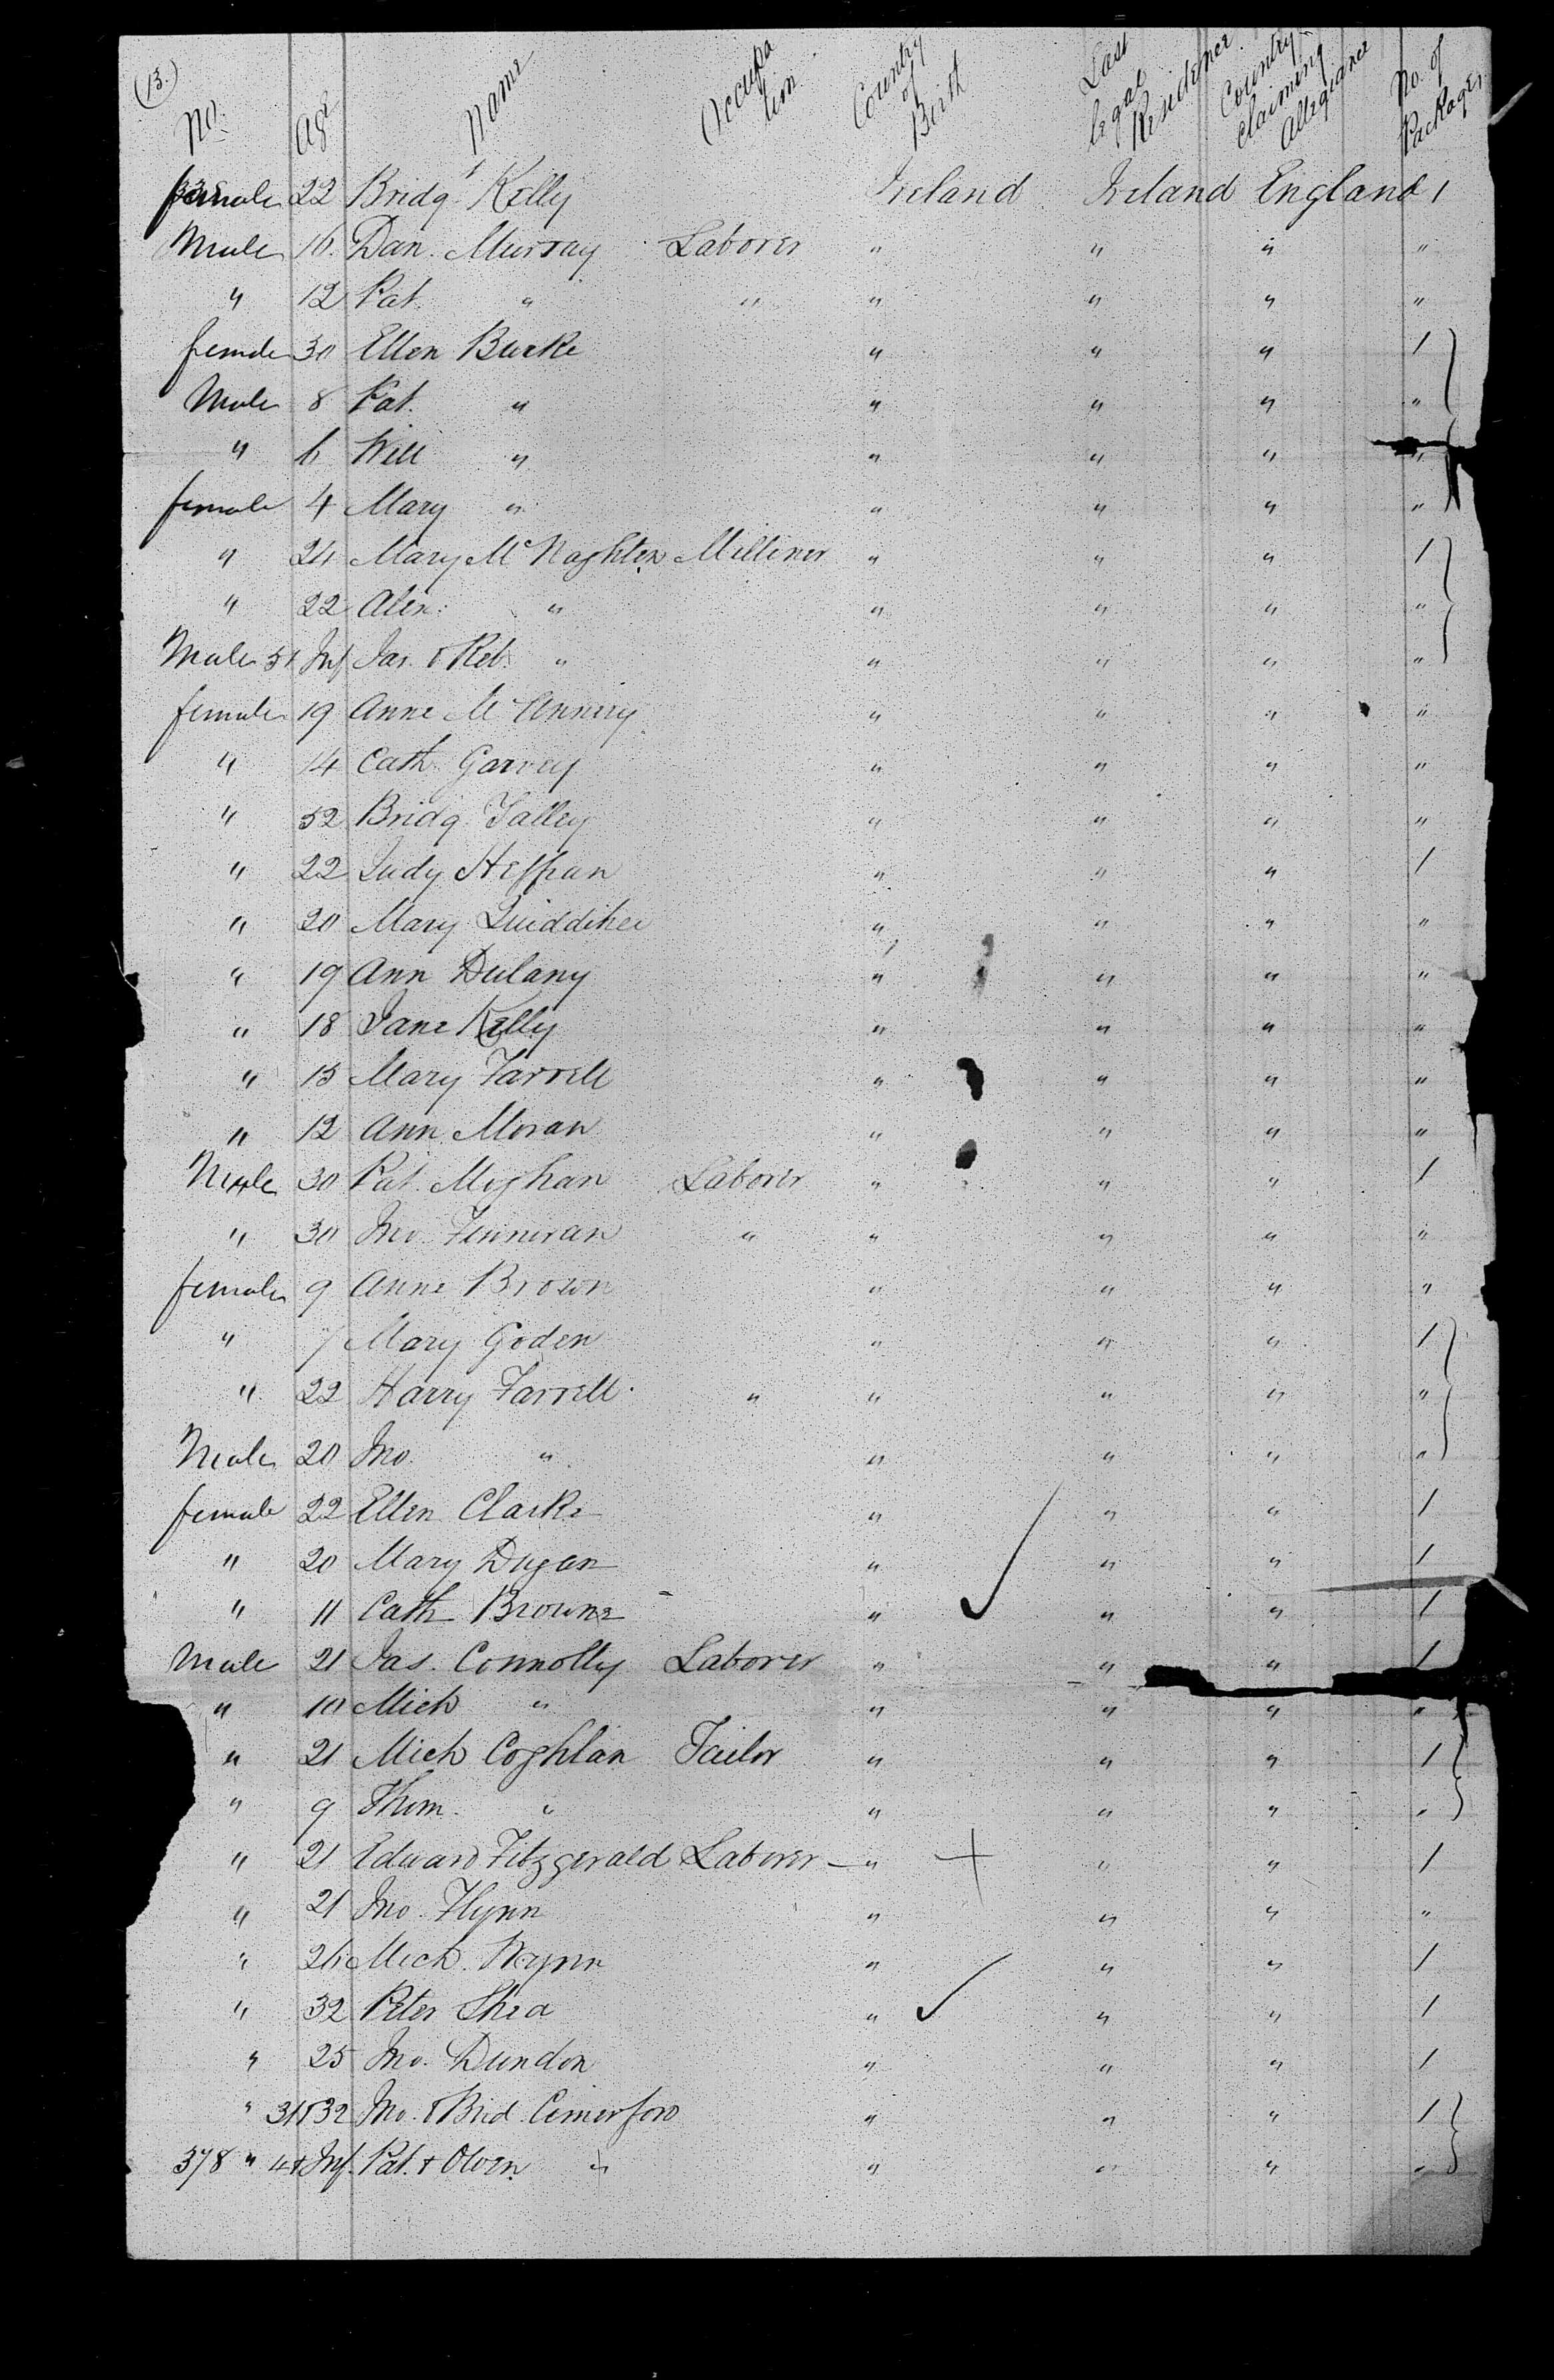 (13.)
No. Age Name Occupation Country of Birth Last legal Residence Country claiming Allegiance No. of Packages
female 22 Bridg.t Kelly Ireland Ireland England 1
Male 16 Dan. Murray Laborer " " " "
" 12 Pat. " " " " " "
female 30 Ellen Burke " " " 1
Male 8 Pat. " " " " "
" 6 Will " " " " "
female 4 Mary " " " " "
" 24 Mary McNaghten Milliner " " " 1
" 22 Alex. " " " " "
Male 5 & Inf Jas. & Rob. " " " " "
female 19 Anne " " " "
" 14 Cath. Garvey " " " "
" 52 Bridg. Talley " " " "
" 22 Judy Heffran " " " 1
" 20 Mary " " " "
" 19 Ann Dulany " " " "
" 18 Jane Kelly " " " "
" 15 Mary Farrell " " " "
" 12 Ann Moran " " " "
Male 30 Pat. Meghan Laborer " " " 1
" 30 Jno. Finneran " " " " "
female 9 Anne Brown " " " "
" 7 Mary Goden " " " 1
" 22 Harry Farrell " " " " "
Male 20 Jno. " " " " "
female 22 Ellen Clarke " " " 1
" 20 Mary Dugan " " " 1
" 11 Cath Browne " " " 1
Male 21 Jas. Connolly Laborer " " " 1
" 10 Mich " " " " "
" 21 Mich Coghlan Tailor " " " 1
" 9 Thom. " " " " "
" 21 Edward Fitzgerald Laborer " " " 1
" 21 Jno. Flynn " " " "
" 26 Mich. Wynn " " " 1
" 32 Peter Shea " " " 1
" 25 Jno. Dundon " " " 1
" 31 & 32 Jno. & Brid. Comerford " " " 1
378 " 4 & Inf. Pat. & Owen " " " " "